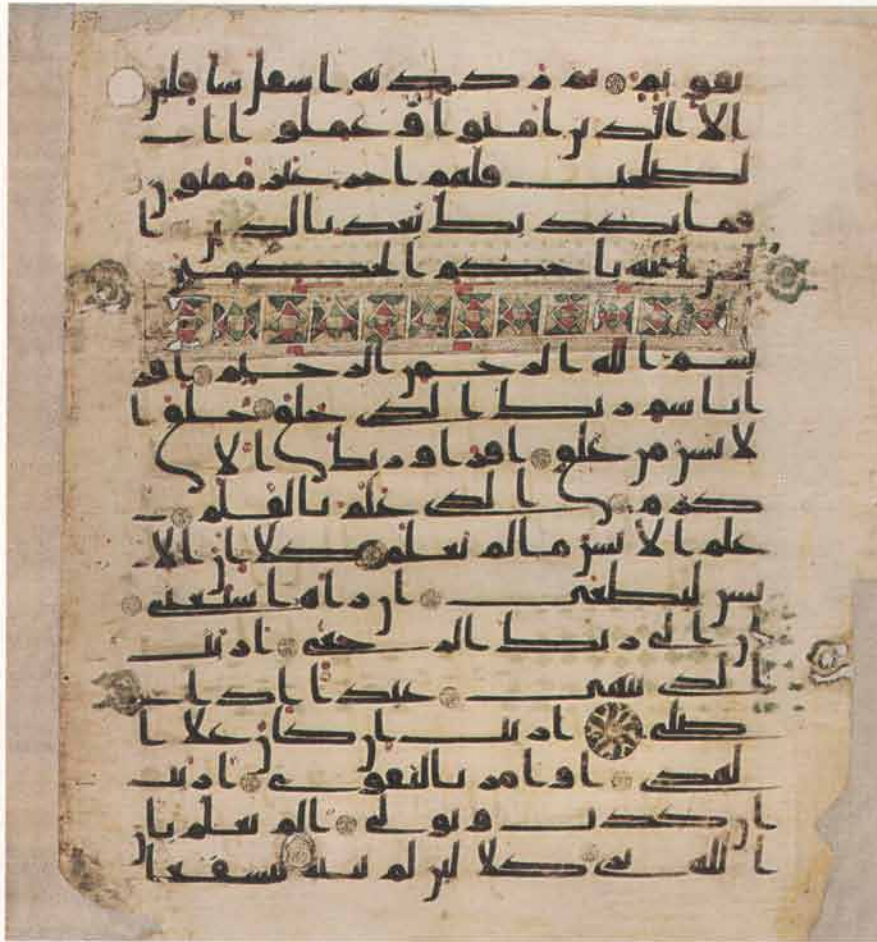 تقويم ثم رددنه اسفل سافلين
الا الذين امنوا وعملوا ا
لصلحت فلهم اجر غير ممنون
فما يكذبك بعد بالدين ا
ليس الله باحكم الحكمين
بسم الله الرحمن الرحيم اقر
ا باسم ربك الذي خلق خلق ا
لانسن من علق اقرا وربك الا
كرم الذي علم بالقلم
علم الانسن ما لم يعلم كلا ان الا
نسن ليطغى ان راه استغنى
ان الى ربك الرجعى اريت
الذي ينهى عبدا اذا
صلى اريت ان كان على ا
لهدى او امر بالتقوى اريت
ان كذب وتولى الم يعلم بان
الله يرى كلا لئن لم ينته لنسفعا